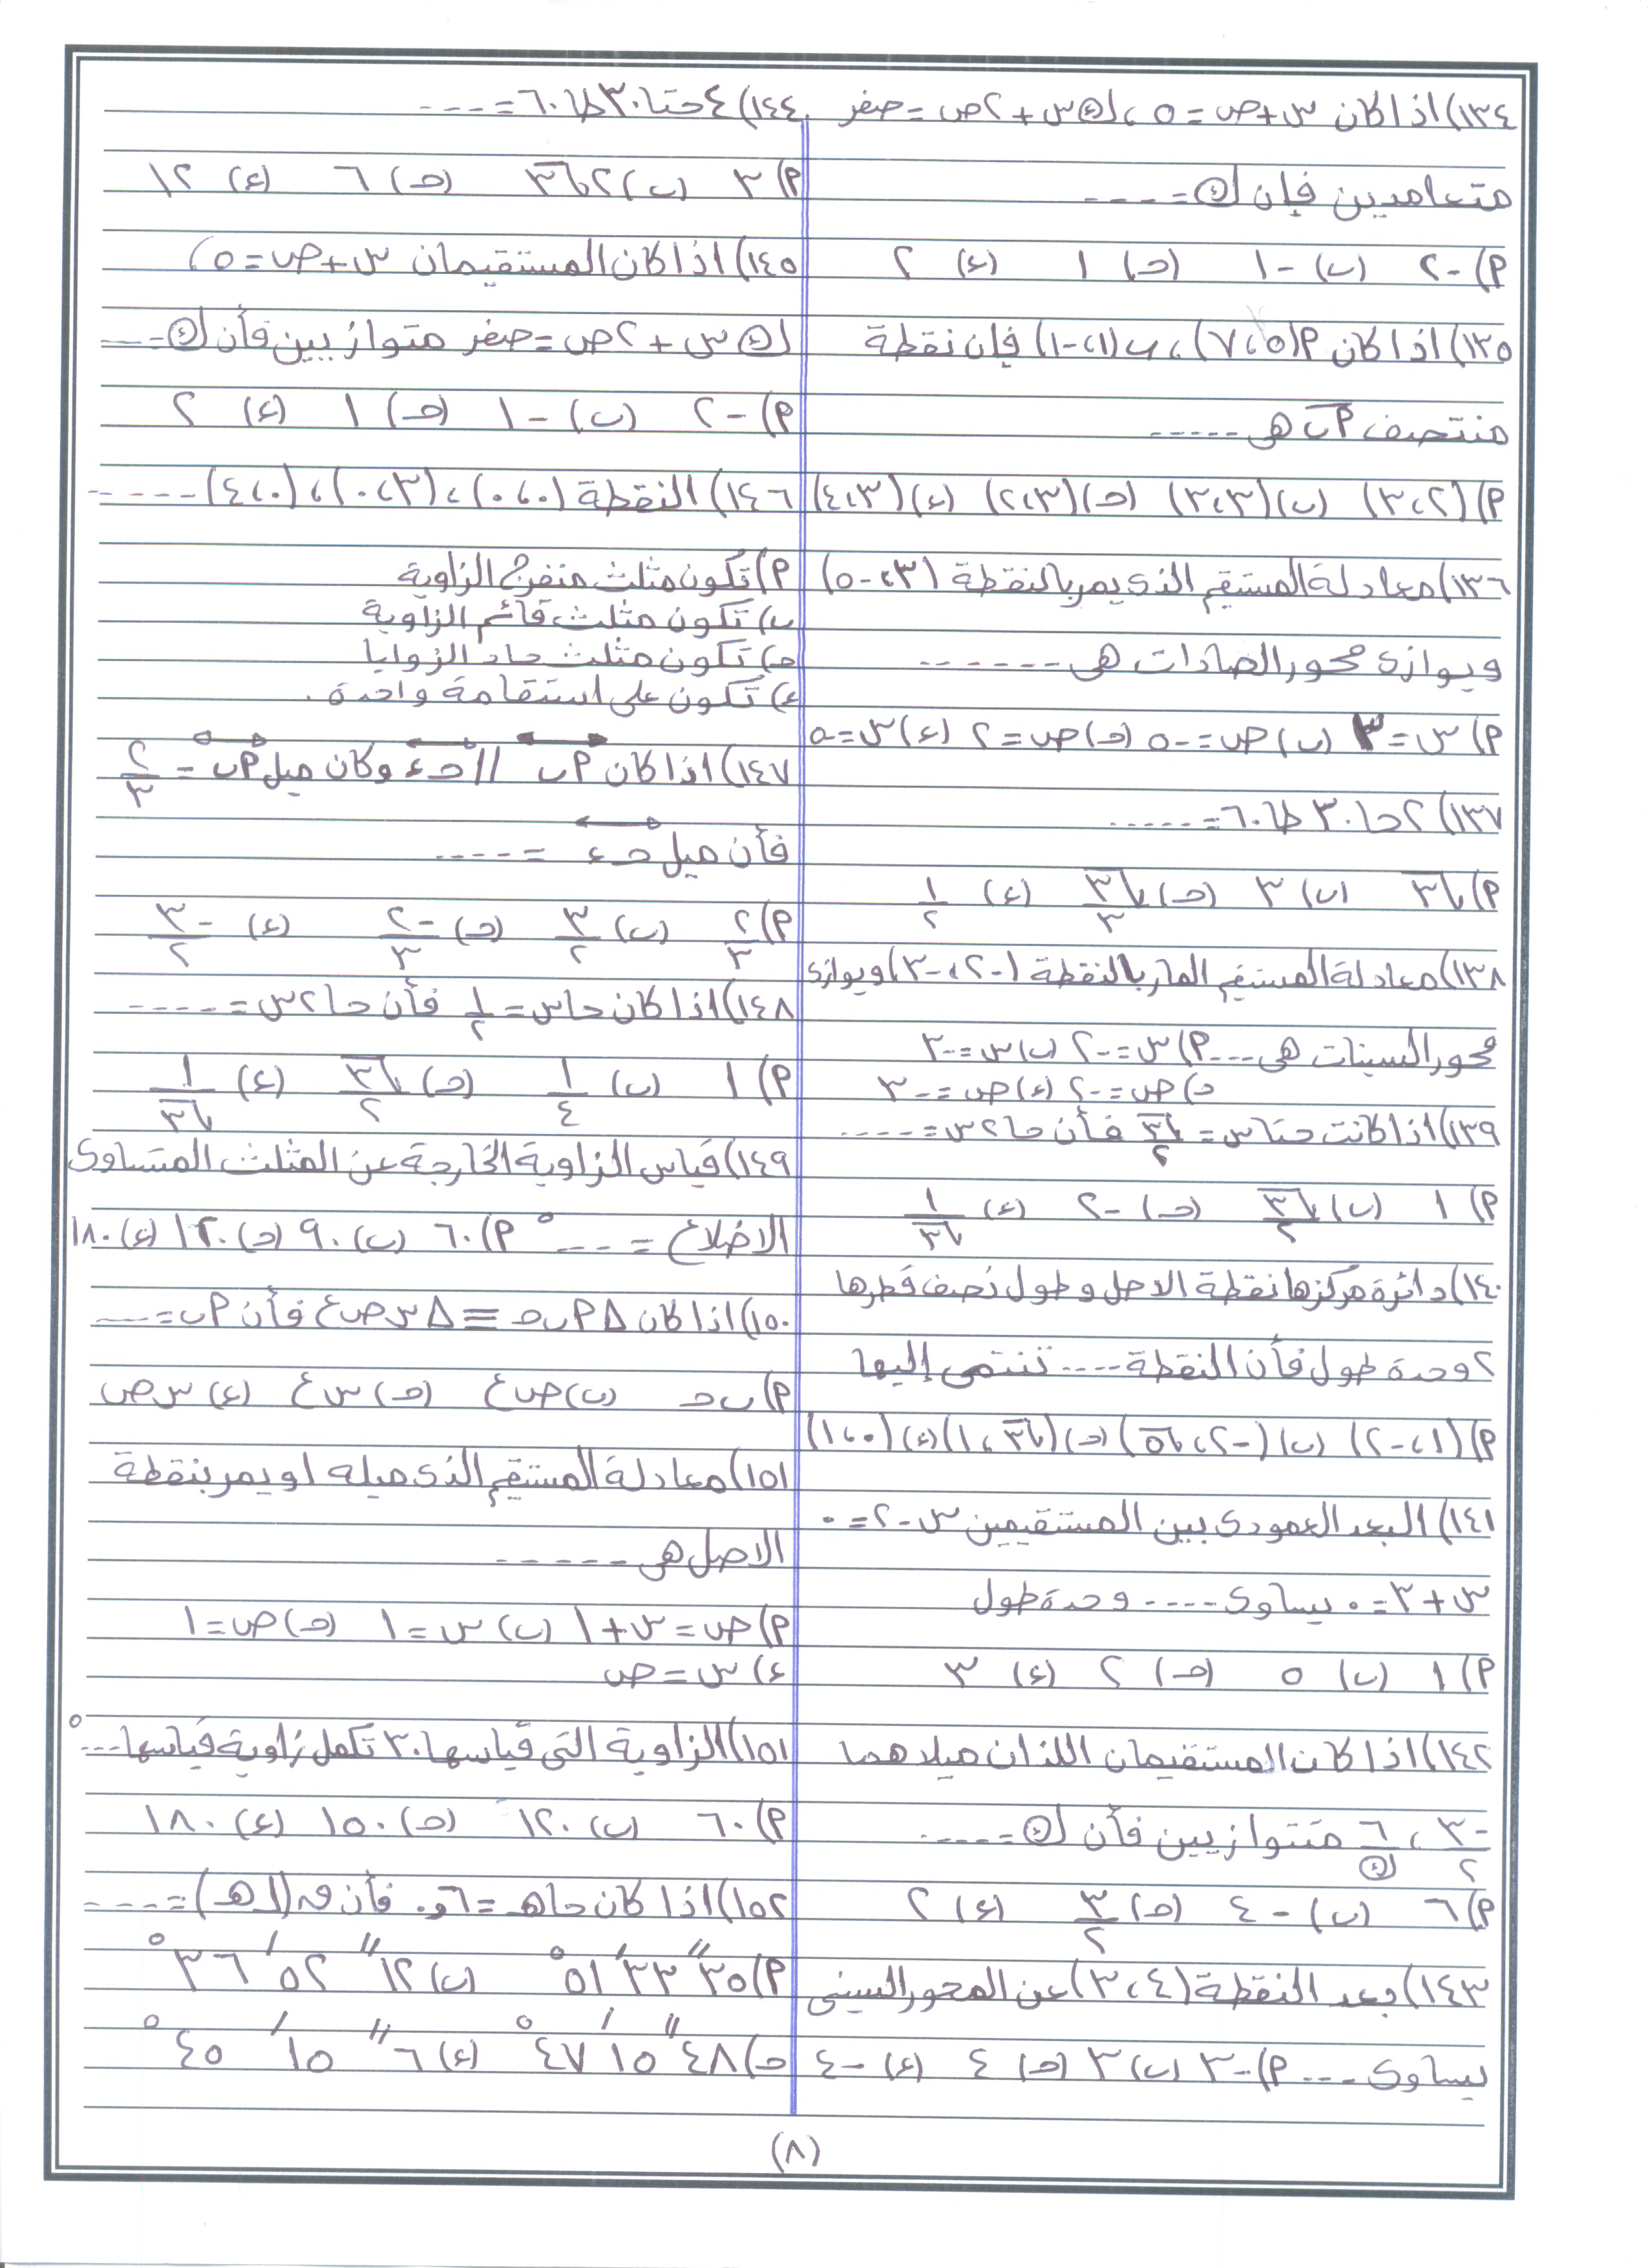 ١٣٤) اذا كان س+ص=٥ ، ك س+٢ص=صفر
متعامدين فإن ك=----
٢) -٢ (ب) -١ (ح) ١ (ء) ٢
١٣٥) اذا كان ٢(٥،٧) ، ب(١،-١) فإن نقطة
منتصف ٢ب هى -----
٢) (٢،٣) (ب) (٣،٣) (ح) (٣،٢) (ء) (٣،٤)
١٣٦) معادلة المستقيم الذى يمر بالنقطة (٣،-٥)
ويوازى محور الصادات هى ------
٢) س=٣ (ب) ص=-٥ (ح) ص=٢ (ء) س=٥
١٣٧) ٢حا٣٠ طا٦٠=-----
٢) √٣ (ب) ٣ (ح) √٣/٣ (ء) ١/٢
١٣٨) معادلة المستقيم المار بالنقطة (-٢،-٣) ويوازى
محور السينات هى --- ٢) س=-٢ ب) س=-٣
ح) ص=-٢ (ء) ص=-٣
١٣٩) اذا كانت حتاس=√٣/٢ فأن حا٢س=----
٢) ١ (ب) √٣/٢ (ح) -٢ (ء) ١/√٣
١٤٠) دائرة مركزها نقطة الاصل وطول نصف قطرها
٢ وحدة طول فأن النقطة ---- تنتمى إليها
٢) (١،-٢) (ب) (-٢،√٥) (ح) (√٣،١) (ء) (٠،١)
١٤١) البعد العمودى بين المستقيمين س-٢=٠
س+٣=٠ يساوى ---- وحدة طول
٢) ١ (ب) ٥ (ح) ٢ (ء) ٣
١٤٢) اذا كان المستقيمان اللذان ميلاهما
-٣/٢ ، ٦/ك متوازيين فأن ك=-----
٢) ٦ (ب) -٤ (ح) ٣/٢ (ء) ٢
١٤٣) بعد النقطة (٤،٣) عن المحور السينى
يساوى --- ٢) -٣ (ب) ٣ (ح) ٤ (ء) -٤
١٤٤) ٤حتا٣٠ طا٦٠=----
٢) ٣ (ب) ٢√٣ (ح) ٦ (ء) ١٢
١٤٥) اذا كان المستقيمان س+ص=٥،
ك س+٢ص=صفر متوازيين فأن ك=---
٢) -٢ (ب) -١ (ح) ١ (ء) ٢
١٤٦) النقطة (٠،٠) ، (٣،٠) ، (٠،٤) -----
٢) تكون مثلث منفرج الزاوية
ب) تكون مثلث قائم الزاوية
ح) تكون مثلث حاد الزوايا
ء) تكون على استقامة واحدة.
١٤٧) اذا كان ٢ب // حء وكان ميل ٢ب = ٢/٣
فأن ميل حء =----
٢) ٢/٣ (ب) ٣/٢ (ح) -٢/٣ (ء) -٣/٢
١٤٨) اذا كان حاس=١/٢ فأن حا٢س=-----
٢) ١ (ب) ١/٤ (ح) √٣/٢ (ء) ١/√٣
١٤٩) قياس الزاوية الخارجة عن المثلث المتساوى
الاضلاع =---° ٢) ٦٠ (ب) ٩٠ (ح) ١٢٠ (ء) ١٨٠
١٥٠) اذا كان Δ٢بح ≡ Δس ص ع فأن ٢ب=---
٢) بح (ب) ص ع (ح) س ع (ء) س ص
١٥١) معادلة المستقيم الذى ميله ١ ويمر بنقطة
الاصل هى ------
٢) ص=س+١ (ب) س=١ (ح) ص=١
ء) س=ص
١٥١) الزاوية التى قياسها ٣٠ تكمل زاوية قياسها ---°
٢) ٦٠ (ب) ١٢٠ (ح) ١٥٠ (ء) ١٨٠
١٥٢) اذا كان حاهـ=٠,٦ فأن ق(∠هـ)=----
٢) ٣٥ ً ٣٣ َ ٥١° (ب) ١٢ ً ٥٢ َ ٣٦°
ح) ٤٨ ً ١٥ َ ٤٧° (ء) ٦ ً ١٥ َ ٤٥°
(٨)